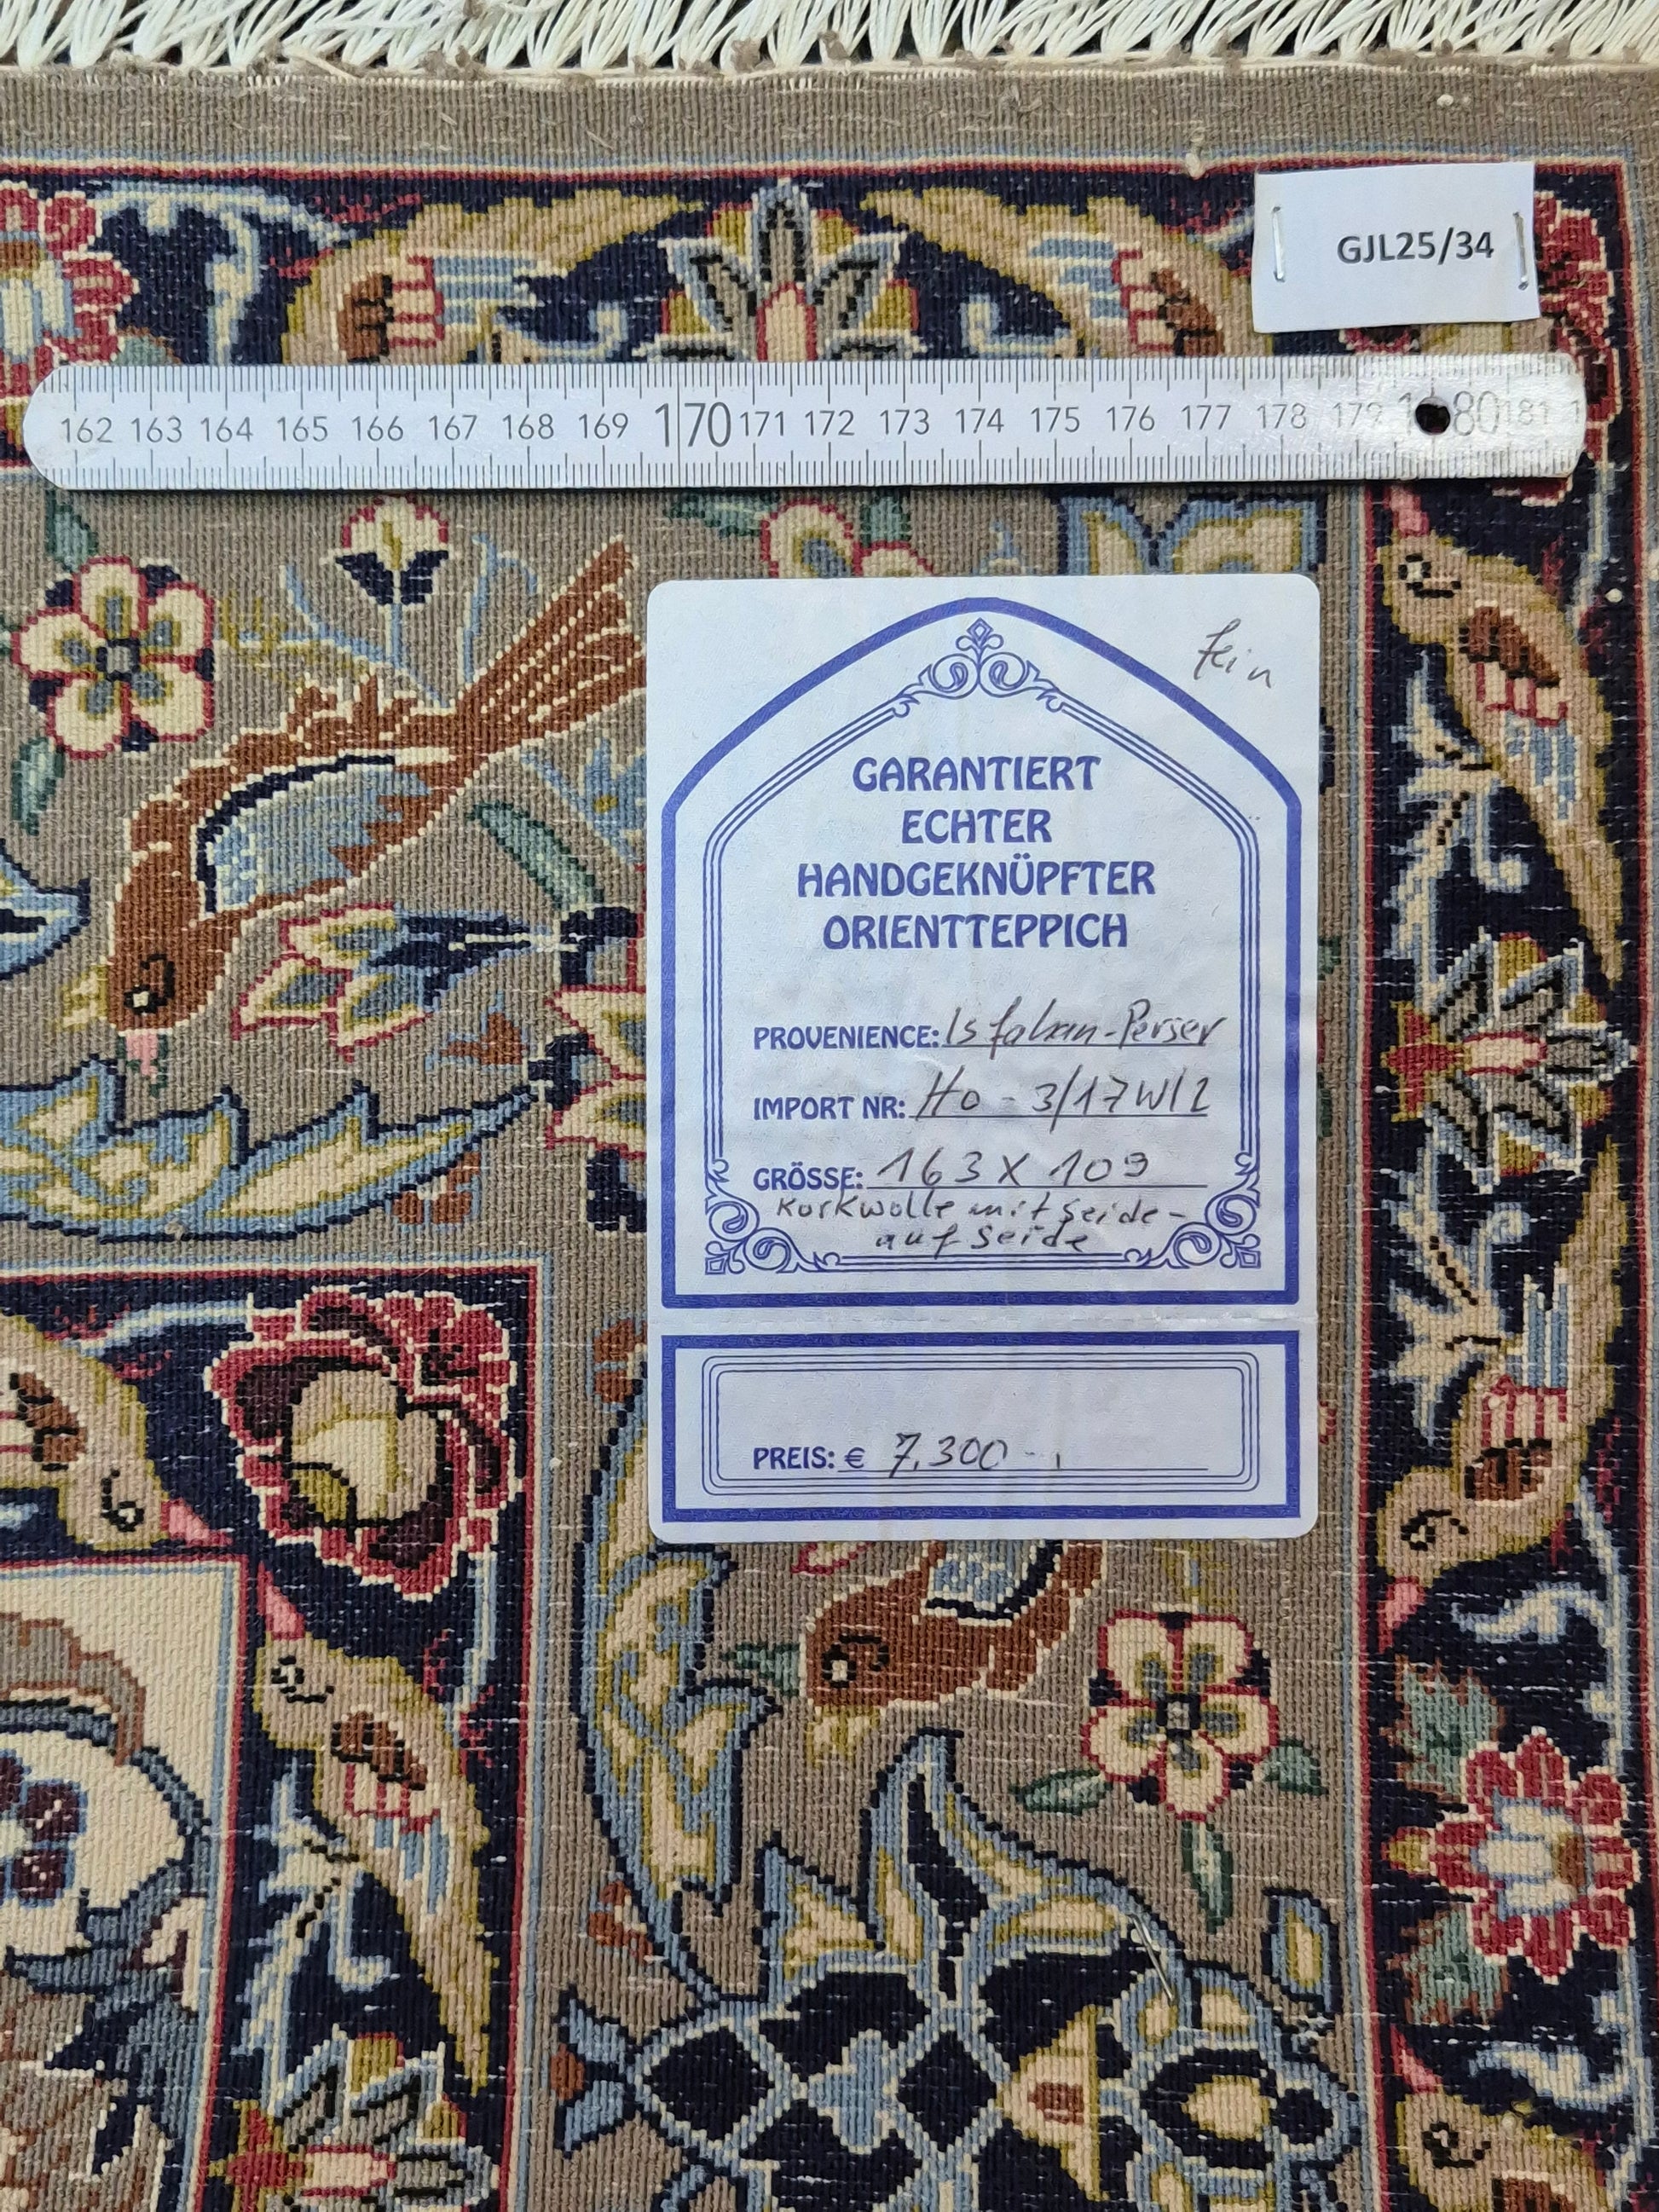 GJL25/34
162 163 164 165 166 167 168 169 170 171 172 173 174 175 176 177 178 179 180 181
fein
GARANTIERT
ECHTER
HANDGEKNÜPFTER
ORIENTTEPPICH
PROVENIENCE: Isfahan-Perser
IMPORT NR: Ho - 3/17W/2
GRÖSSE: 163 X 109
Korkwolle mit Seide -
auf Seide
PREIS: € 7.300 - ,